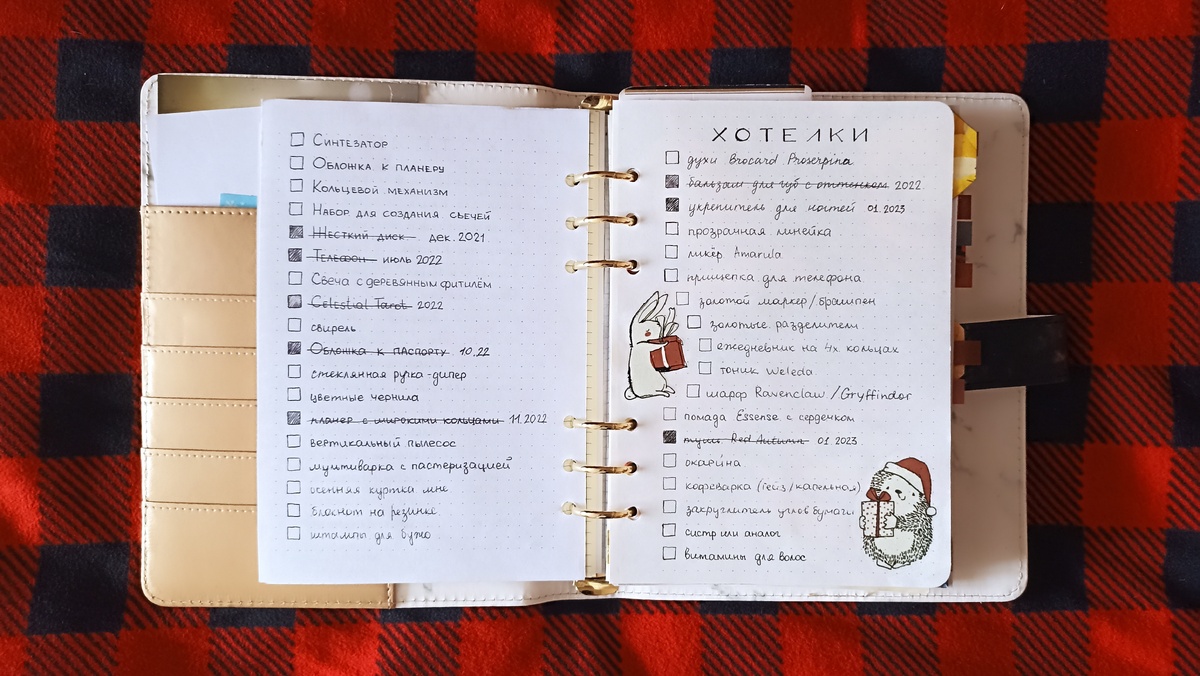 Синтезатор
Обложка к планеру
Кольцевой механизм
Набор для создания свечей
Жесткий диск дек. 2021
Телефон июль 2022
Свеча с деревянным фитилём
Celestial Tarot 2022
свирель
Обложка к паспорту 10.22
стеклянная ручка-дипер
цветные чернила
планер с широкими кольцами 11.2022
вертикальный пылесос
мультиварка с пастеризацией
осенняя куртка мне
блокнот на резинке
штампы для бужо
ХОТЕЛКИ
духи Brocard Proserpina
бальзам для губ с оттенком 2022
укрепитель для ногтей 01.2023
прозрачная линейка
ликёр Amarula
прищепка для телефона
золотой маркер/брашпен
золотые разделители
ежедневник на 4х кольцах
тоник Weleda
шарф Ravenclaw/Gryffindor
помада Essense с сердечком
тушь Red Autumn 01.2023
окарина
кофеварка (гейз/капельная)
закруглитель углов бумаги
систр или аналог
витамины для волос